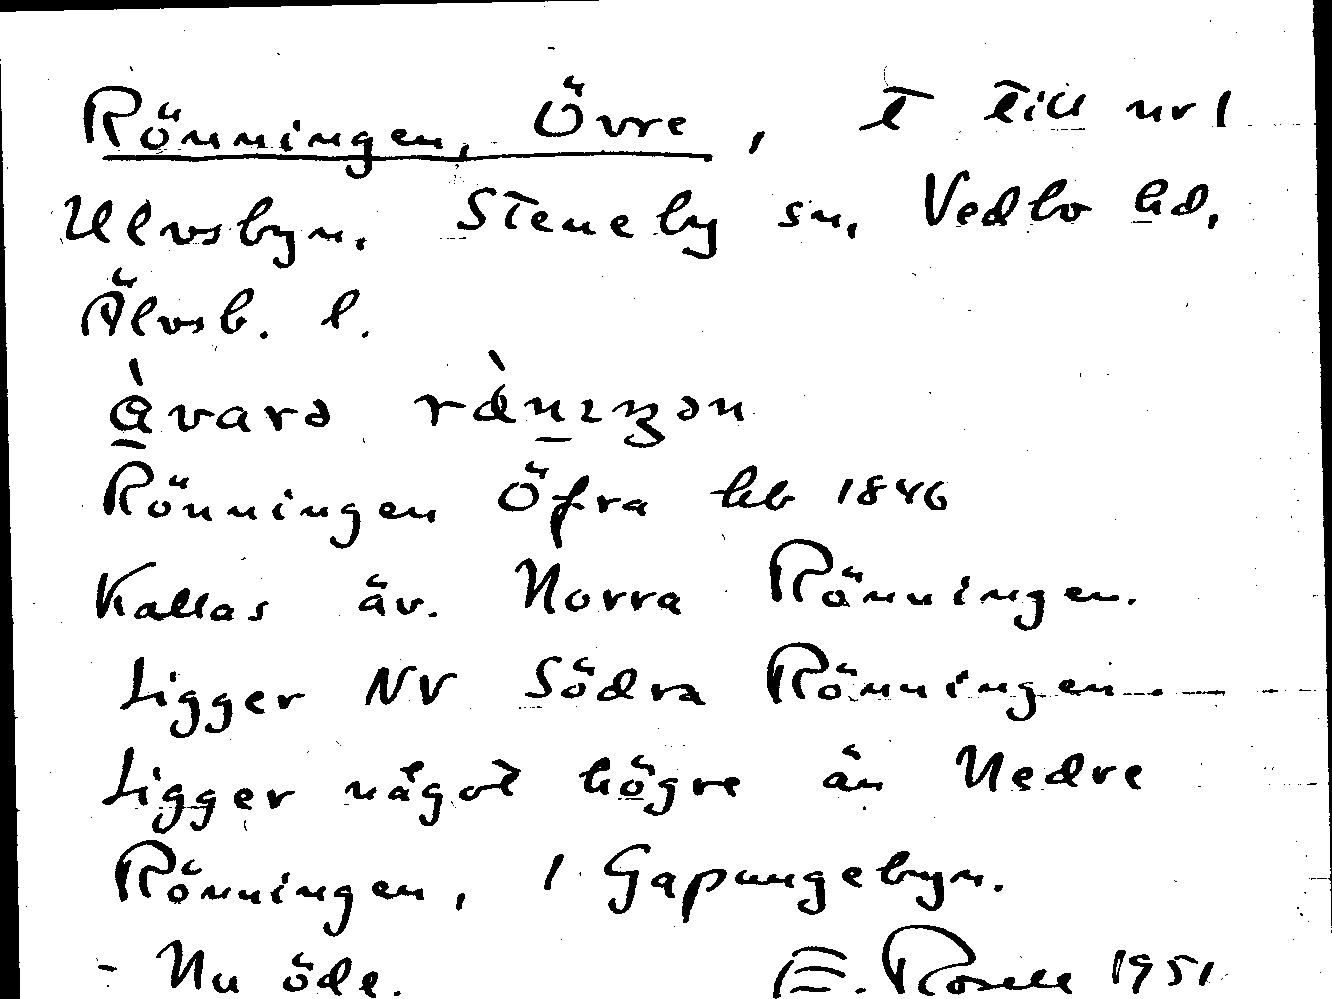 Rönningen, Övre, t till nr 1
Ulvsbyn. Steneby sn, Vedbo hd,
Älvsb. l.
Rönningen Öfra hb 1846
Kallas äv. Norra Rönningen.
Ligger NV Södra Rönningen.
Ligger något högre än Nedre
Rönningen, 1 Gapungebyn.
- Nu öde. E. Rosell 1951